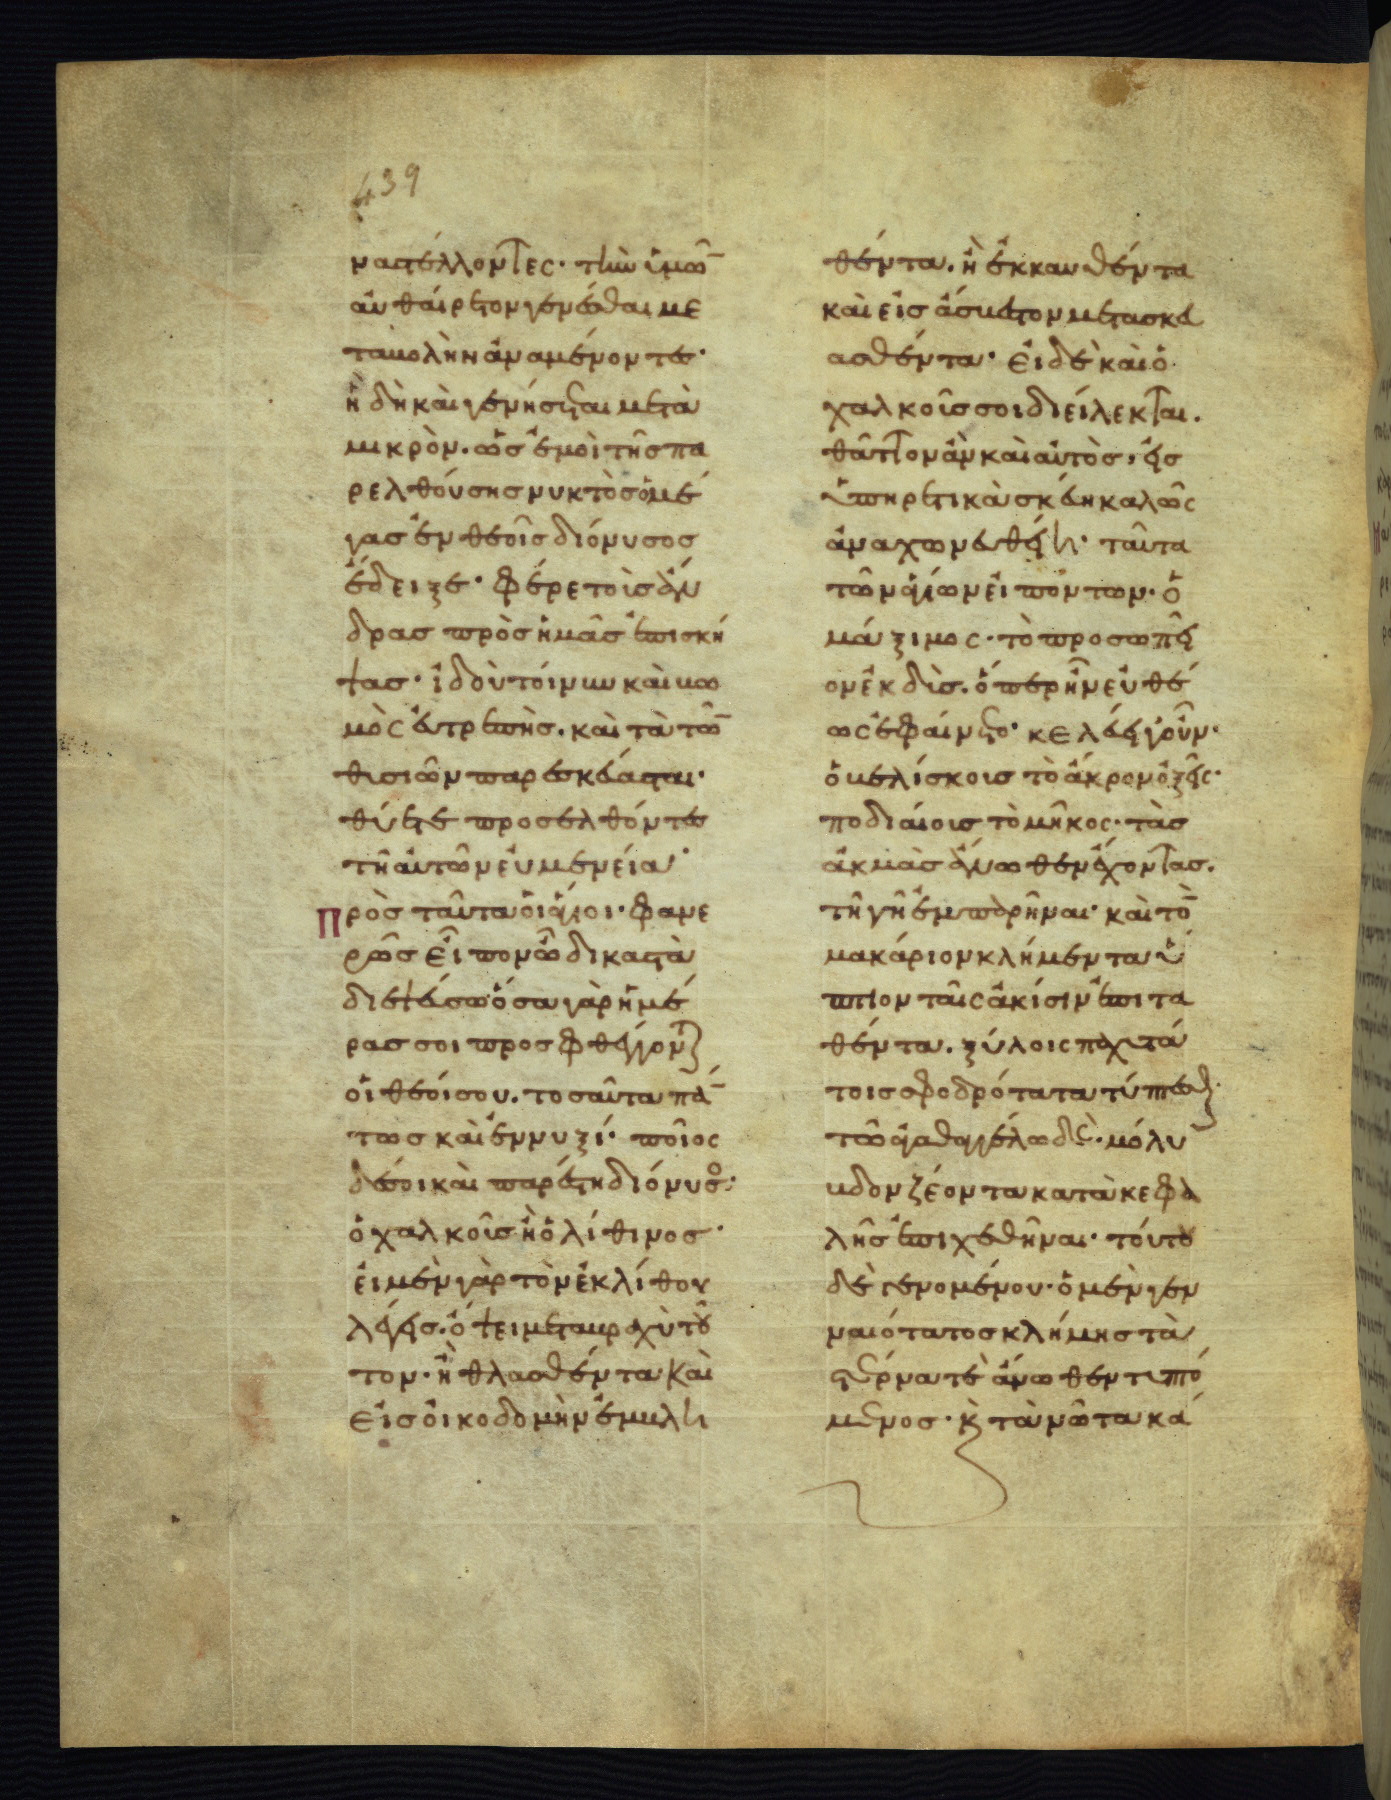 439
ναστέλλοντες· τὴν ὑμῶν
αὐθαίρετον γενέσθαι με
ταβολὴν ἀναμένοντες·
ἤδη καὶ γενήσεται μετὰ
μικρὸν. ὡς ἐμοὶ τῆς πα
ρελθούσης νυκτὸς ὁ μέ
γας ἐν θεοῖς διόνυσος
ἔδειξε· φέρε τοὶς ἄν
δρας πρὸς ἡμᾶς ἐπισκή
ψας· ἰδοὺ τοίνυν καὶ βω
μὸς εὐτρεπὴς. καὶ τὰ τῶν
θυσιῶν παρεσκεύασται·
θύετε προσελθόντες
τῆ αὐτῶν εὐμενεία·
Πρὸς ταῦτα οἱ ἅγιοι· φανε
ρῶς εἶπον ὦ δικαστὰ
διεψεύσω ὅσα γὰρ ἡμέ
ρας σοι προσφθέγγονται
οἱ θεοί σου. τοσαῦτα πάν
τως καὶ ἐν νυξί· ποῖος
δέ σοι καὶ παρέστη διόνυσος·
ὁ χαλκοῦς ἢ ὁ λίθινος·
εἰ μὲν γὰρ τὸν ἐκ λίθου
λέγεις. ὄψει μεταβραχὺ τοῦ
τον· ἢ θλασθέντα καὶ
εἰς οἰκοδομὴν ἐμβλη
θέντα. ἢ ἐκκαυθέντα
καὶ εἰς ἄσβεστον μετασκευ
ασθέντα· εἰ δὲ καὶ ὁ
χαλκοῦς σοι διείλεκται.
θᾶττον ἂν καὶ αὐτὸς, εἰς
ὑπηρετικὰ σκεύη καλῶς
ἀναχωνευθείη· ταῦτα
τῶν ἁγίων εἰπόντων· ὁ
μάξιμος· τὸ προσωπεῖ
ον ἐκδὺς. ὅπερ ἦν εὐθέ
ως ἐφαίνετο· κελεύει γοῦν·
ὀβελίσκοις τὸ ἄκρον ὀξεῖς·
ποδιαίοις τὸ μῆκος· τὰς
ἀκμὰς ἄνωθεν ἔχοντας.
τῆ γῆ ἐμπαρῆναι· καὶ τὸν
μακάριον κλήμεντα ὕ
πτιον ταῖς ἀκίσιν ἐπιτα
θέντα. ξύλοις παχυτά
τοις σφοδρότατα τύπτεσθαι·
τῶ ἀγαθαγγέλω δὲ· μόλυ
βδον ζέοντα κατὰ κεφα
λῆς ἐπιχεθῆναι· τούτου
δὲ γενομένου· ὁ μὲν γεν
ναιότατος κλήμης τὰ
στέρνα τὲ ἄνωθεν τυπτό
μενος· καὶ τὰ νῶτα κά